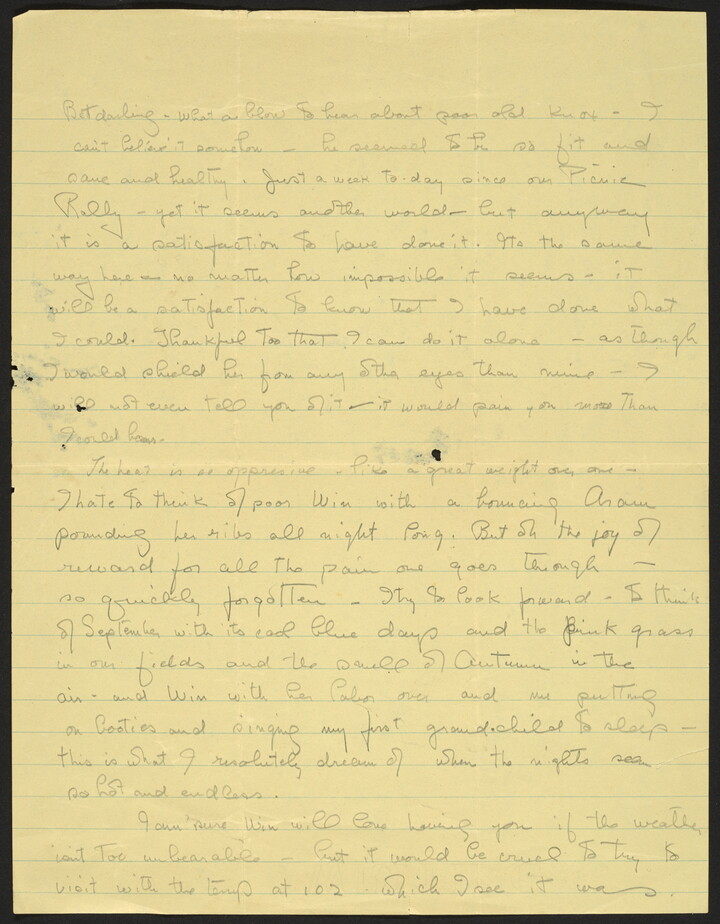 Bet darling - what a blow to hear about poor old Knox - I
can't believe it somehow - he seemed to be so fit and
sane and healthy. Just a week to-day since our Picnic
Rally - yet it seems another world - but anyway
it is a satisfaction to have done it. Its the same
way here - no matter how impossible it seems - it
will be a satisfaction to know that I have done what
I could. Thankful too that I can do it alone - as though
I would shield her from any other eyes than mine - I
will not even tell you of it - it would pain you more than
I could bear.
The heat is so oppressive - like a great weight over one -
I hate to think of poor Win with a bouncing Aram
pounding her ribs all night long. But oh the joy of
reward for all the pain one goes through -
so quickly forgotten - I try to look forward - to think
of September with its cool blue days and the pink grass
in our fields and the smell of Autumn in the
air - and Win with her labor over and me putting
on booties and singing my first grand-child to sleep -
this is what I resolutely dream of when the nights seem
so hot and endless.
I am sure Win will love having you if the weather
isn't too unbearable - but it would be cruel to try to
visit with the temp at 102 - which I see it was.